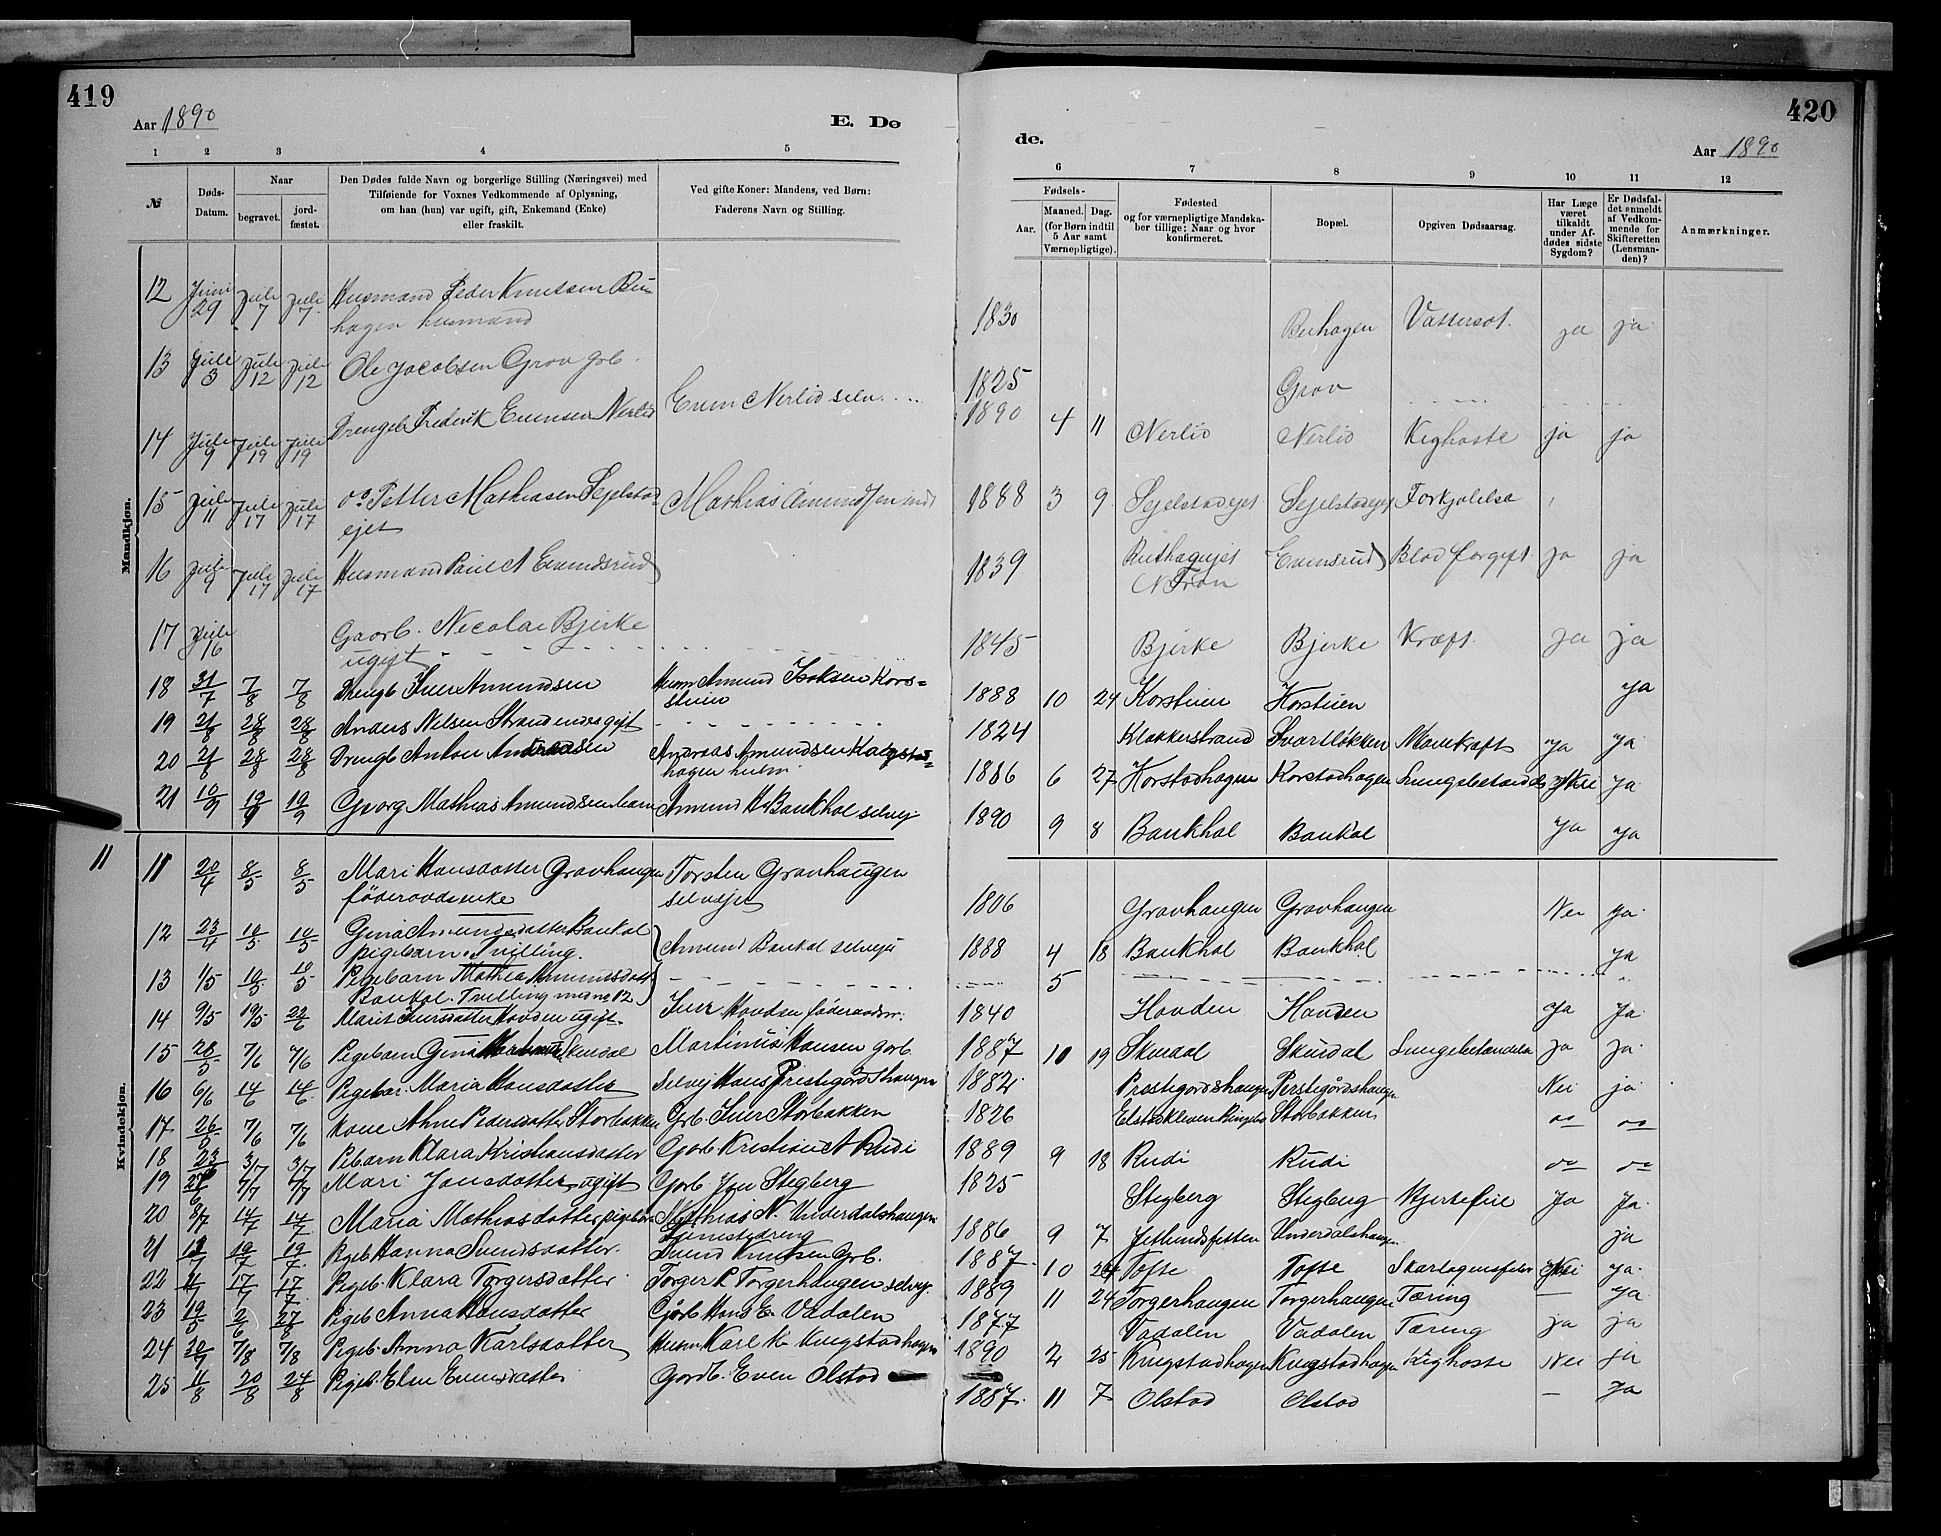 419
Aar 1890
E. Dø
1 2 3 4 5
№
Døds-
Datum.
Naar
begravet.
jord-
fæstet.
Den Dødes fulde Navn og borgerlige Stilling (Næringsvei) med
Tilføiende for Voxnes Vedkommende af Oplysning,
om han (hun) var ugift, gift, Enkemand (Enke)
eller fraskilt.
Ved gifte Koner: Mandens, ved Børn:
Faderens Navn og Stilling.
Mandkjøn.
12 Juni 29 Juli 7 Juli 7 Husmand Peder Knutsen
hagen husmand
13 Juli 3 Juli 12 Juli 12 Ole Jacobsen Grov grb
14 Juli 9 Juli 19 Juli 19 Drengeb Frederik Evensen Nerlid Even Nerlid selv
15 Juli 11 Juli 17 Juli 17 Petter Mathiasen Sejelstad Mathias Amundsen
ejet
16 Juli 9 Juli 17 Juli 17 Husmand Paul A Evensrud
17 Juli 16 Gaarb. Nicolai Bjerke
ugift
18 31/7 7/8 7/8 Drengb Iver Amundsen Husm Amund Isaksen Kors=
stuen
19 21/8 28/8 28/8 Anders Nilsen Strand ugift
20 21/8 28/8 28/8 Drengb Anton Andreassen Andreas Amundsen
hagen husm
21 10/9 19/9 19/9 Georg Mathias Amundsen barn Amund H Baukhol selvej
Kvindekjøn.
11
11 20/4 8/5 8/5 Mari Hansdatter Gravhaugen Torsten Gravhaugen
føderaadsenke selvejer
12 23/4 10/5 10/5 Gina Amundsdatter Baukol
pigebarn. Tvilling. Amund Baukol selvejer
13 1/5 10/5 10/5 Pigebarn Mathea Amundsdatt
Baukol. Tvilling med no 12
14 9/5 19/5 22/6 Marit Iversdatter Hovden ugift. Iver Hovden føderaadsm.
15 28/5 7/6 7/6 Pigebarn Gina Skurdal Martinus Hansen grb.
16 6/6 14/6 14/6 Pigebar. Maria Hansdatter Selvej Hans Prestegårdshaugen
17 26/5 7/6 7/6 Kone Ahne Pedersdatter Storbakken Grb Iver Storbakken
18 23/6 3/7 3/7 Pibarn Klara Kristiansdatter Gorb Kristian A Rudi
19 7/7 7/7 Mari Jonsdatter ugift Gorb Stegberg
20 8/7 14/7 14/7 Maria Mathiasdatter pigebarn Mathias N. Underdalshaugen
Tjenestedreng
21 12/7 19/7 19/7 Pigeb Hanna Svendsdatter. Svend Knutsen Grb.
22 11/7 17/7 17/7 Pigeb. Klara Torgersdatter Torger P. Torgerhaugen selvej.
23 19/5 2/6 27/8 Pigeb Anna Hansdatter Gorb Hans E. Vadalen
24 20/7 7/8 7/8 Pigeb. Anna Karlsdatter Husm Karl K. Krugstadhagen
25 11/8 20/8 24/8 Pigeb. Elen Evensdatter Gordb. Even Olstad
420
Aar 1890
de.
6 7 8 9 10 11 12
Fødsels-
Aar.
Maaned. Dag.
(for Børn indtil
5 Aar samt
Værnepligtige).
Fødested
og for værnepligtige Mandska-
ber tillige: Naar og hvor
konfirmeret.
Bopæl.
Opgiven Dødsaarsag.
Har Læge
været
tilkaldt
under Af-
dødes sidste
Sygdom?
Er Dødsfal-
det anmeldt
af Vedkom-
mende for
Skifteretten
(Lensman-
den)?
Anmærkninger.
1830 Vattersot. ja ja
1825 Grov
1890 4 11 Nerlid Nerlid Kighoste ja ja
1888 3 9 Sejelstadejet Sejelstadejet Forkjølelse
1839 N Fron Evensrud Blodforgift. ja ja
1845 Bjerke Bjerke Kræft. ja ja
1888 10 24 Korstuen Korstuen ja
1824 Klokkerstrand Svartløkken Mavekræft ja ja
1886 6 27 Korstadhagen Korstadhagen Lungebetændels Nei ja
1890 9 8 Baukhol Baukol ja ja
1806 Gravhaugen Gravhaugen Nei ja
1888 4 18 Baukhol Baukhol ja
5
1840 Hovden Hovden ja ja
1887 10 19 Skurdal Skurdal Lungebetændelse ja ja
1882 Prestegordshaugen Perstegårdshaugen Nei ja
1826 Storbakken
1889 9 18 Rudi Rudi
1825 Stegberg Stegberg Hjertefeil ja ja
1886 9 7 Underdalshaugen ja
1887 10 Tofte Tofte Skarlagensfeber Nei ja
1889 11 24 Torgerhaugen Torgerhaugen Tæring — ja
1877 Vadalen Vadalen Tæring ja ja
1890 2 25 Krugstadhagen Krugstadhagen Kighoste Nei ja
1887 11 7 Olstad Olstad — ja